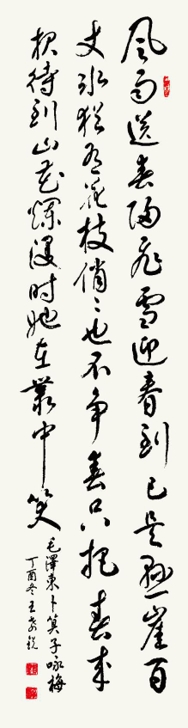 风雨送春归飛雪迎春到已是悬崖百
丈冰猶有花枝俏〻也不争春只把春来
报待到山花烂漫时她在叢中笑
毛澤東卜算子咏梅
丁酉冬王